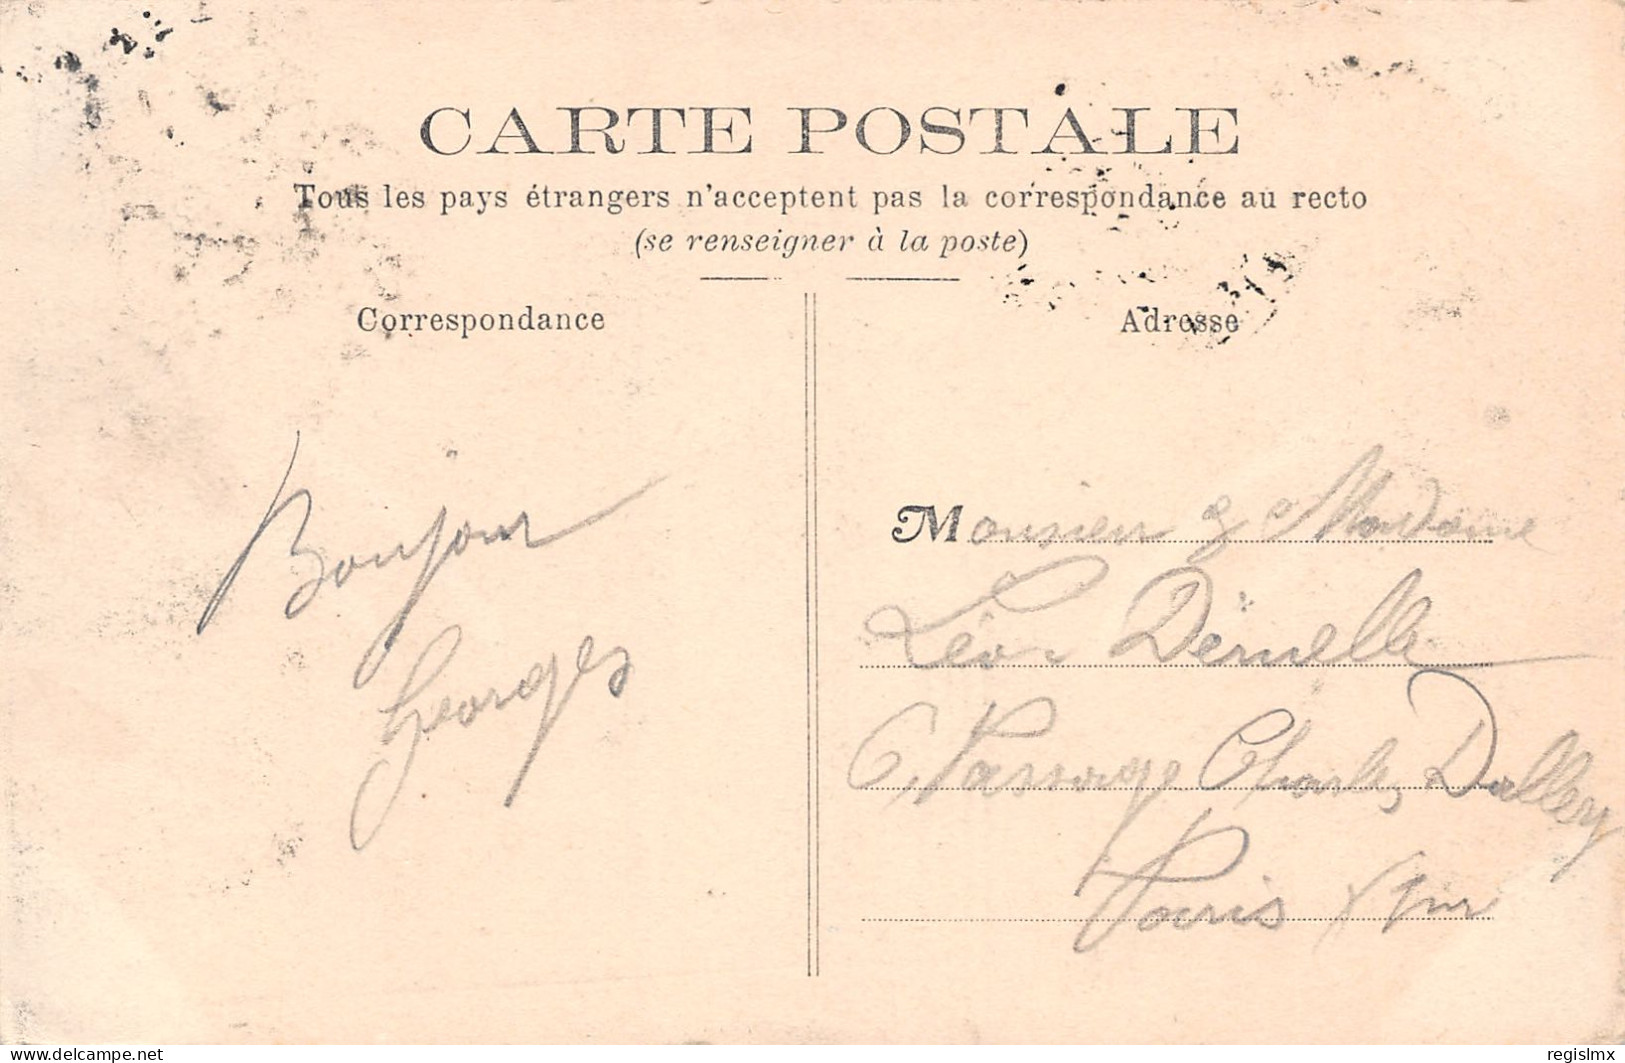 CARTE POSTALE
Tous les pays étrangers n'acceptent pas la correspondance au recto
(se renseigner à la poste)
Correspondance
Adresse
Bonjour
Georges
Monsieur & Madame
Léon
6, Passage Charles Dallery
Paris XI me
www.delcampe.net
regislmx